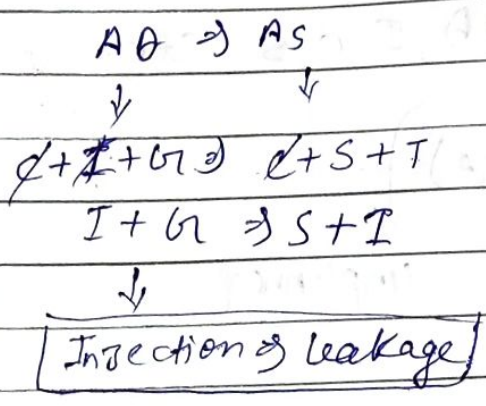 AD ⇒ AS
↓ ↓
C+I+G ⇒ C+S+T
I+G ⇒ S+I
↓
Injection ⇒ leakage